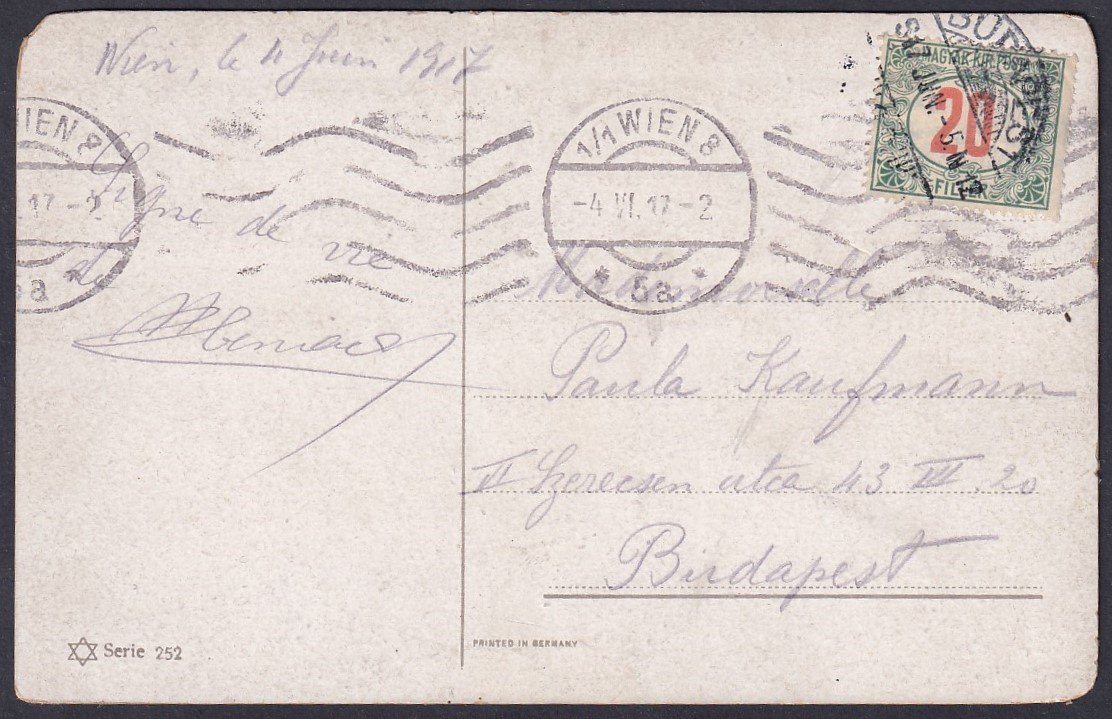 Wien, le 4 Juin 1917
Signe de vie
de
Mademoiselle
Paula Kaufmann
Szerecsen utca 43 III. 20
Budapest
1/1 WIEN 8
-4.VI.17-2
* 5a *
IEN 8
17-2
5a
BUDAPEST
MAGYAR KIR. POSTA
20
FILLÉR
Serie 252
PRINTED IN GERMANY